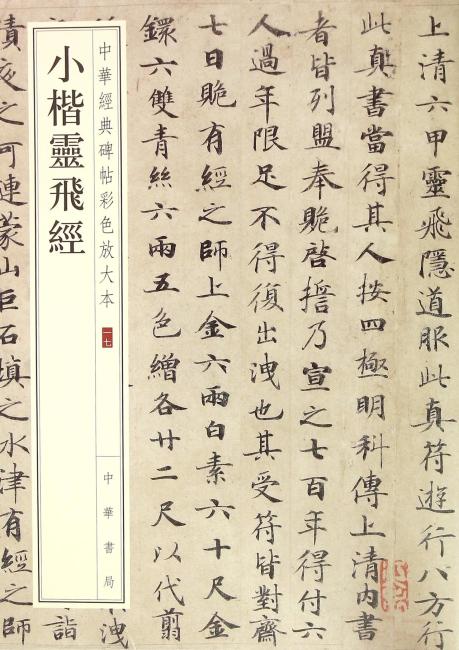 上清六甲靈飛隱道服此真符遊行八方行
此真書當得其人按四極明科傳上清內書
者皆列盟奉貺啓誓乃宣之七百年得付六
人過年限足不得復出洩也其受符皆對齋
七日貺有經之師上金六兩白素六十尺金
鐶六雙青絲六兩五色繒各廿二尺以代翦
洩
中華經典碑帖彩色放大本
一七
中華書局
小楷靈飛經
詣
責夜之河連蒙山巨石填之水津有經之師